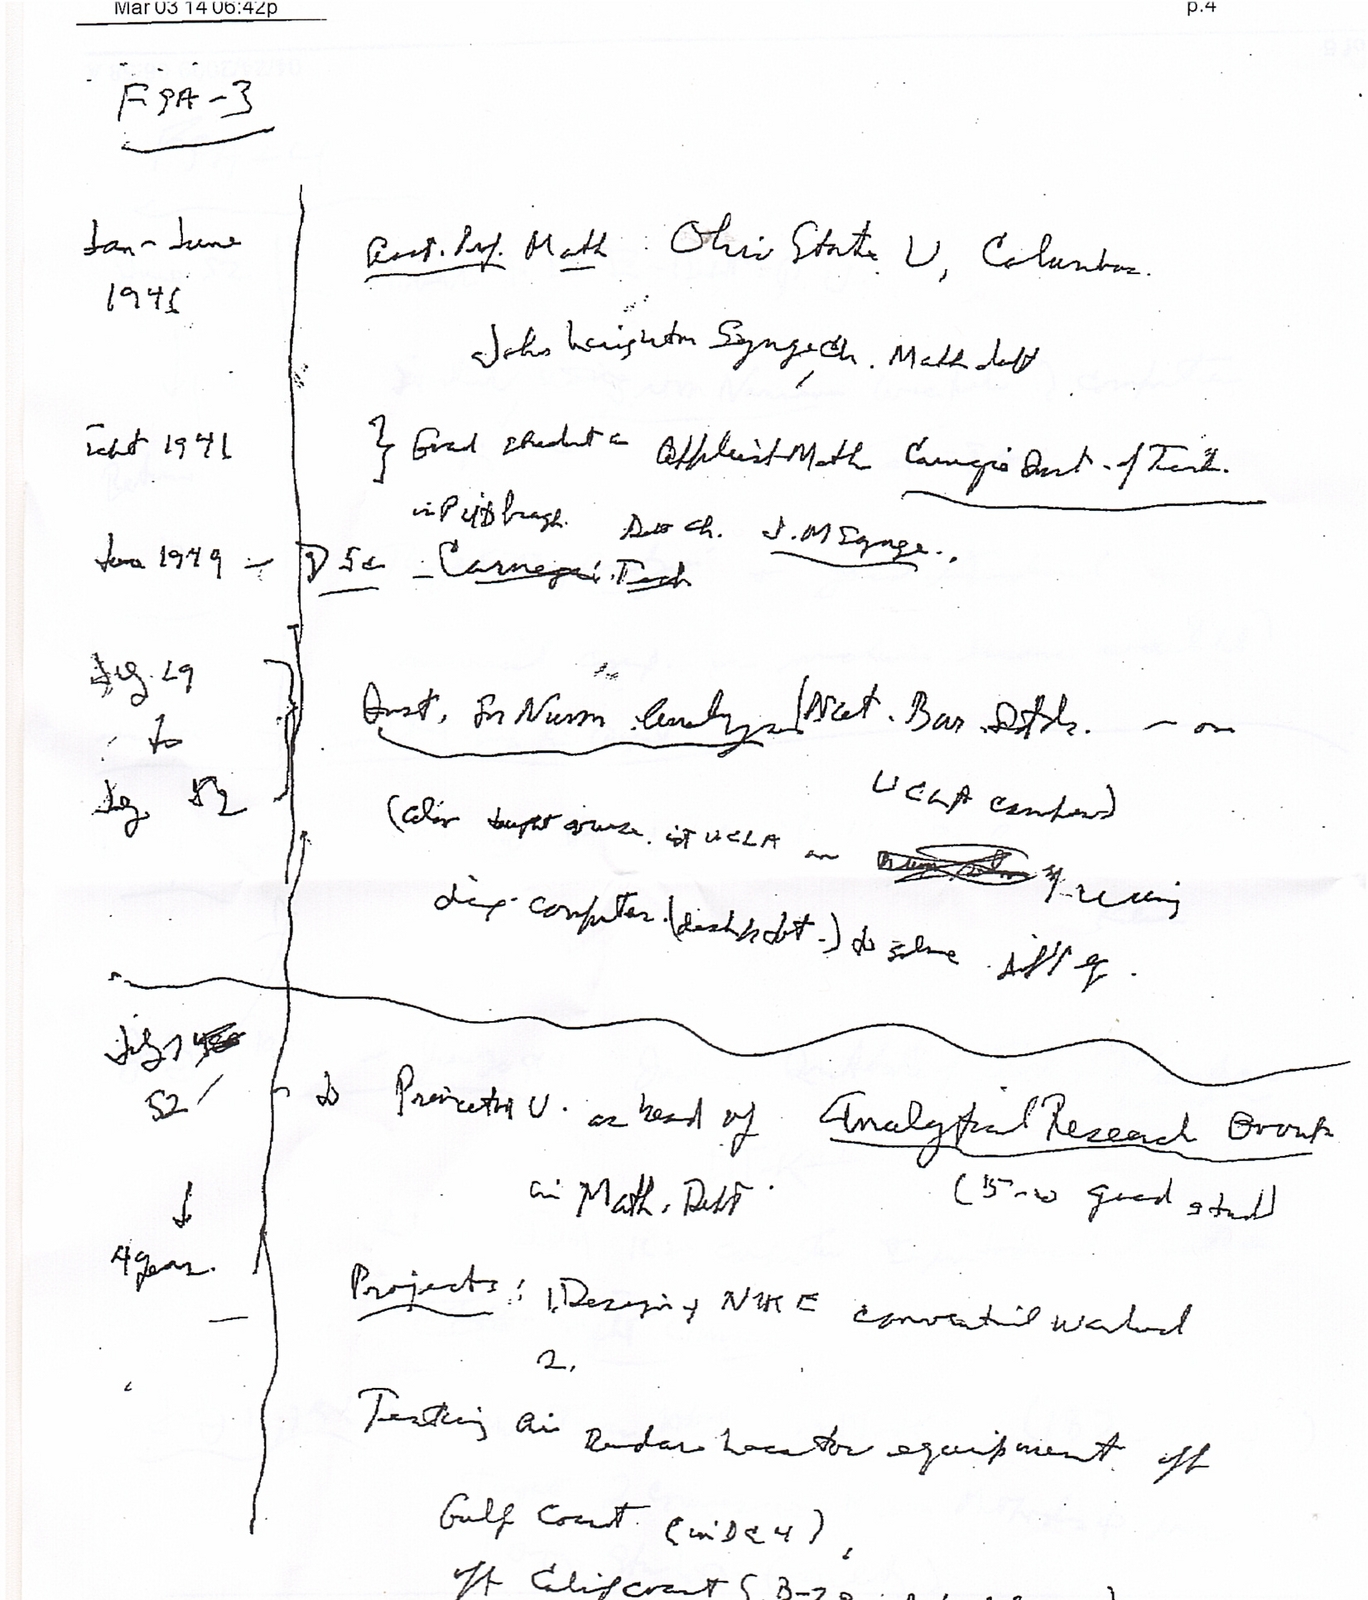 Mar 03 14 06:42p p.4
FPA-3
Jan - June Asst. Prof. Math Ohio State U, Columbus.
1941
John Leighton Synge, Ch. Math dept
Sept 1941 } Grad student in Applied Math Carnegie Inst. of Tech.
in Pittsburgh. Also ch. J. M Synge.
June 1949 - DSc - Carnegie Tech
49
to Inst. for Num Analysis / Nat. Bur. Stds. - on
52 UCLA campus)
(Also taught course at UCLA on using
computer to solve diff eq.
52 - to Princeton U. as head of Analytical Research Group
in Math. Dept. (15-20 grad stud)
↓
4 years.
Projects: 1. Design of NIKE conventil warhead
2.
Testing air Radar Locator equipment off
Gulf Coast (in DC4),
off Calif coast (B-29